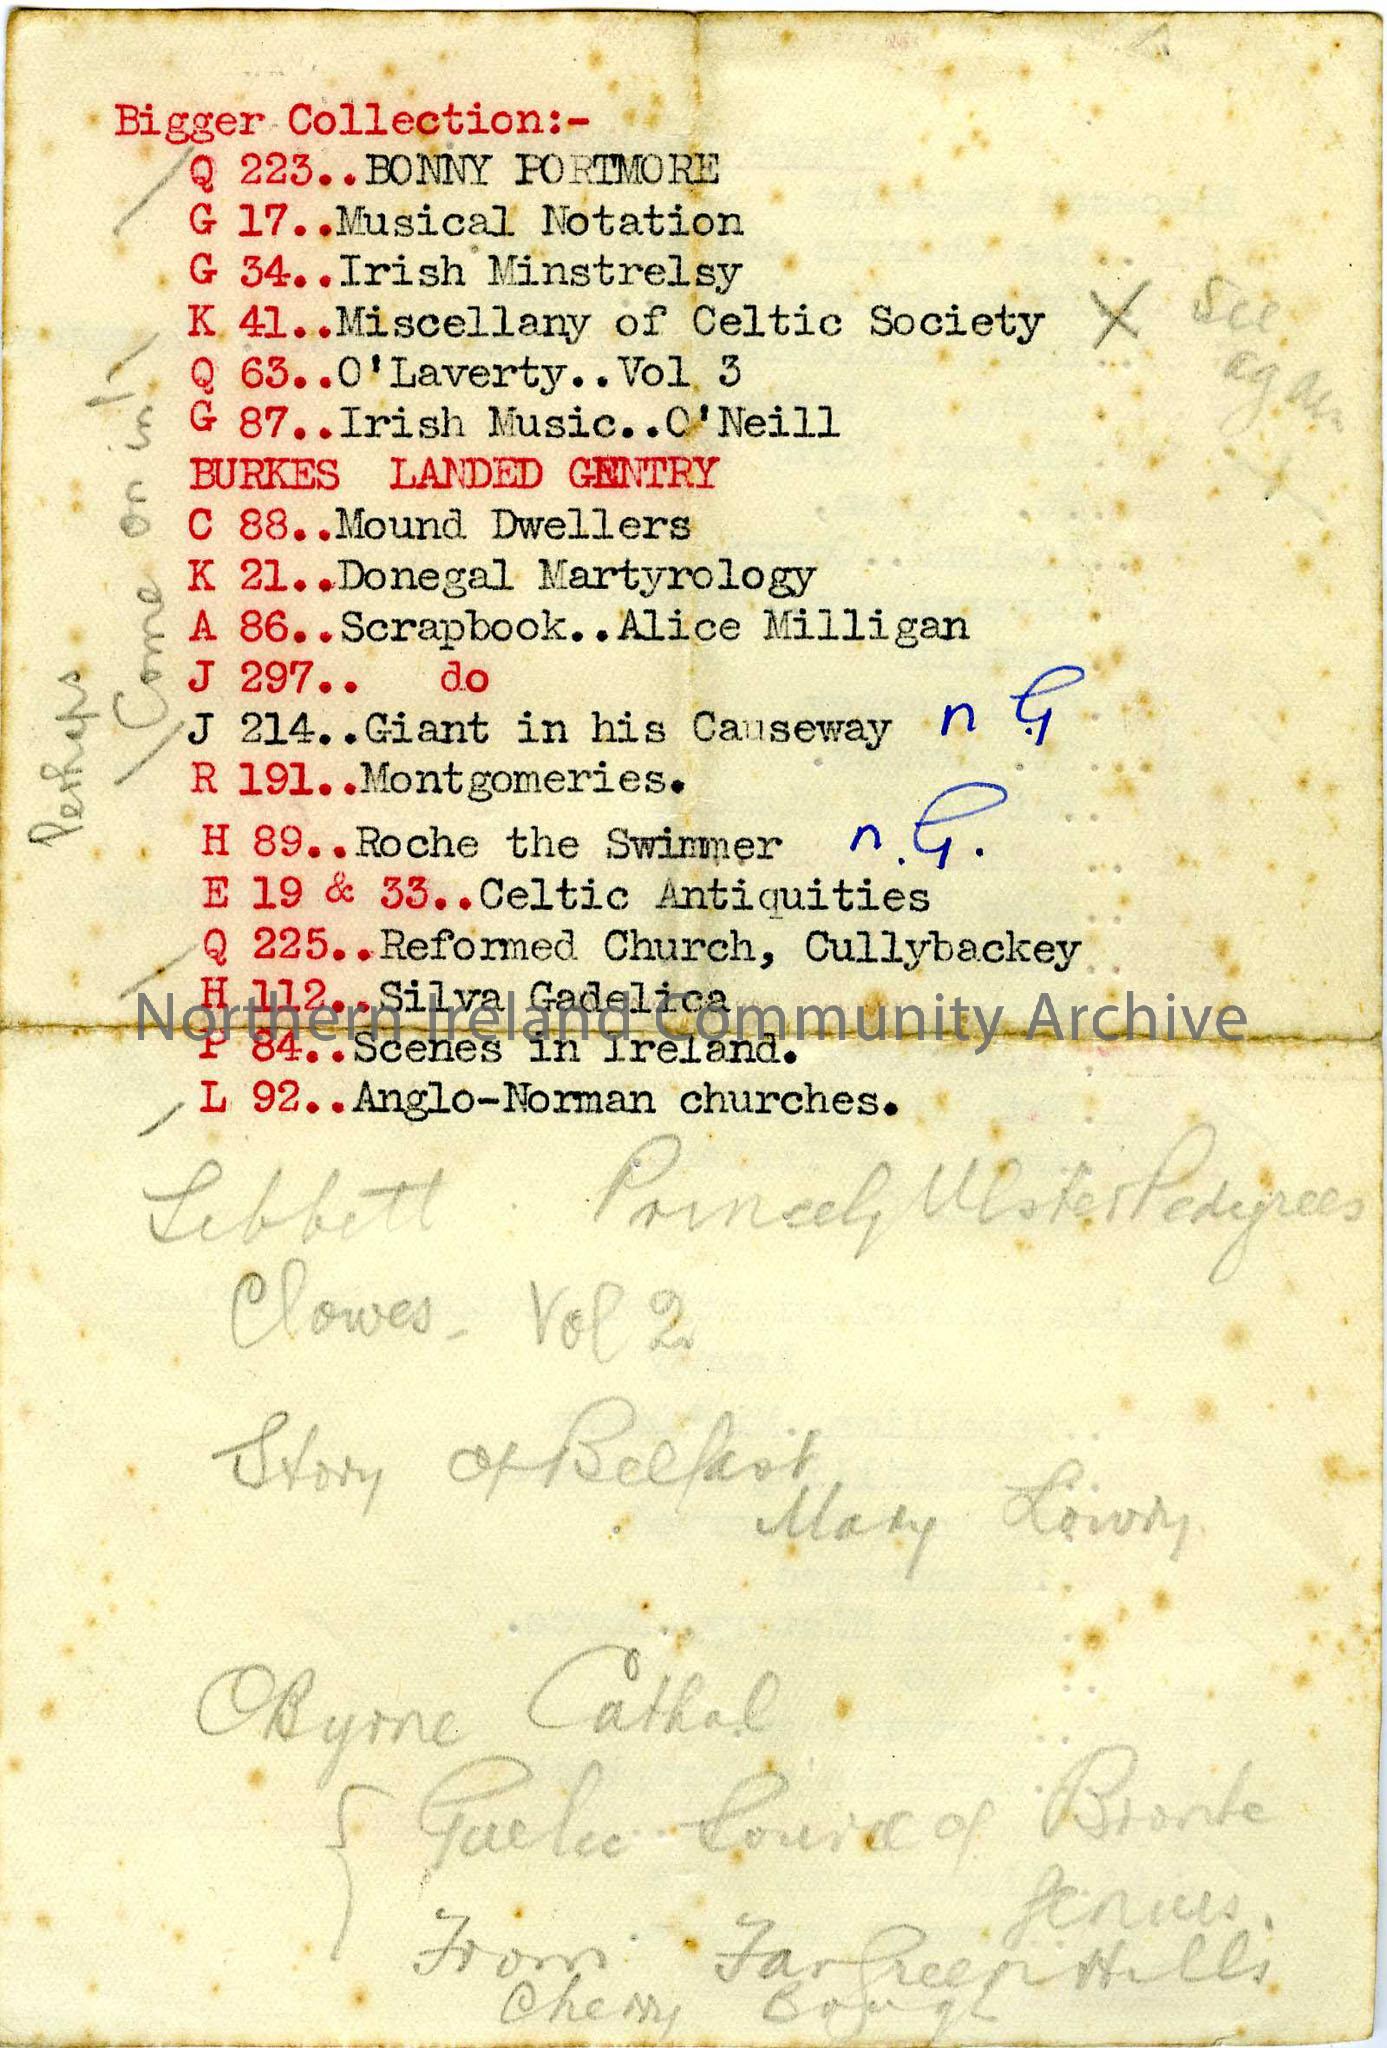 Bigger Collection:-
Q 223..BONNY PORTMORE
G 17..Musical Notation
G 34..Irish Minstrelsy
K 41..Miscellany of Celtic Society X See again
Q 63..O'Laverty..Vol 3
G 87..Irish Music..O'Neill
BURKES LANDED GENTRY
C 88..Mound Dwellers
K 21..Donegal Martyrology
A 86..Scrapbook..Alice Milligan
J 297.. do
J 214..Giant in his Causeway n G
R 191..Montgomeries.
H 89..Roche the Swimmer n.G.
E 19 & 33..Celtic Antiquities
Q 225..Reformed Church, Cullybackey
H 112..Silva Gadelica
P 84..Scenes in Ireland.
L 92..Anglo-Norman churches.
Perhaps
Come on in!
Northern Ireland Community Archive
Princely Ulster Pedigrees
Clowes - Vol 2
Story of Belfast
Mary Lowry
OByrne Cathal
Gaelic Source of Bronte
Genius.
From Far Green Hills
Cherry Bough